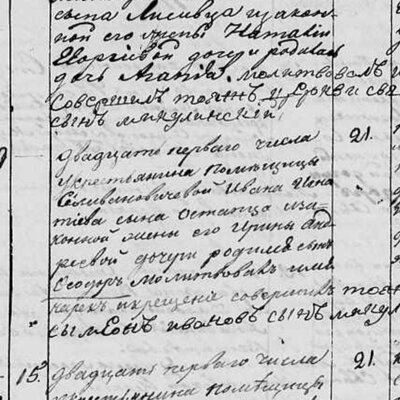 сына Лисивца и законной
ной его жены Наталии
Георгиевой дочери родилась
дочь Агапия. молитвовалъ и
Совершилъ тоянъ церкви свя
сынъ микулинский
двадцать перваго числа 21.
у крестьянина помѣщицы
Селивановичевой Ивана Игна
тиева сына Остапца и за
конной жены его Ирины Анд
реевой дочери родился сынъ
Феодоръ молитвовалъ имя
нарекъ и крещение совершилъ тоян
Сѵмеонъ ивановъ сынъ микул
15. двадцать перваго числа 21.
у крестьянина помѣщицы